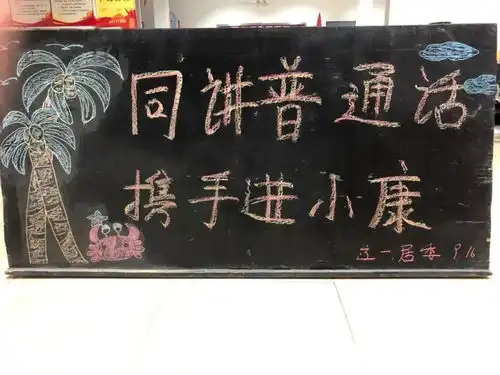 同讲普通话
携手进小康
江一居委 9.16